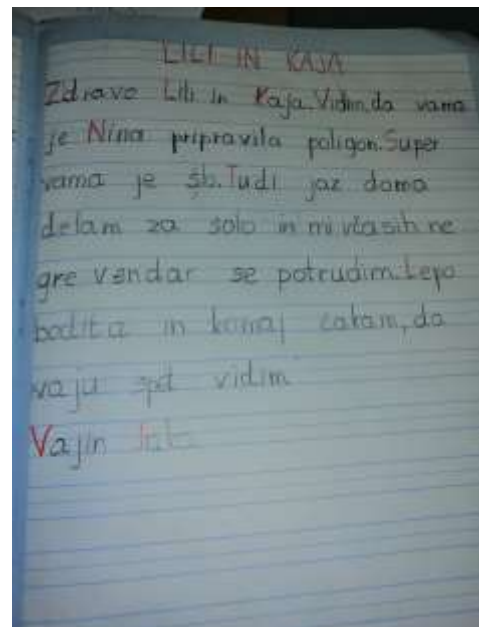 LILI IN KAJA
Zdravo Lili in Kaja. Vidim, da vama
je Nina pripravila poligon. Super
vama je šlo. Tudi jaz doma
delam za šolo in mi včasih ne
gre vendar se potrudim. Lepo
bodita in komaj čakam, da
vaju spt vidim
Vajin